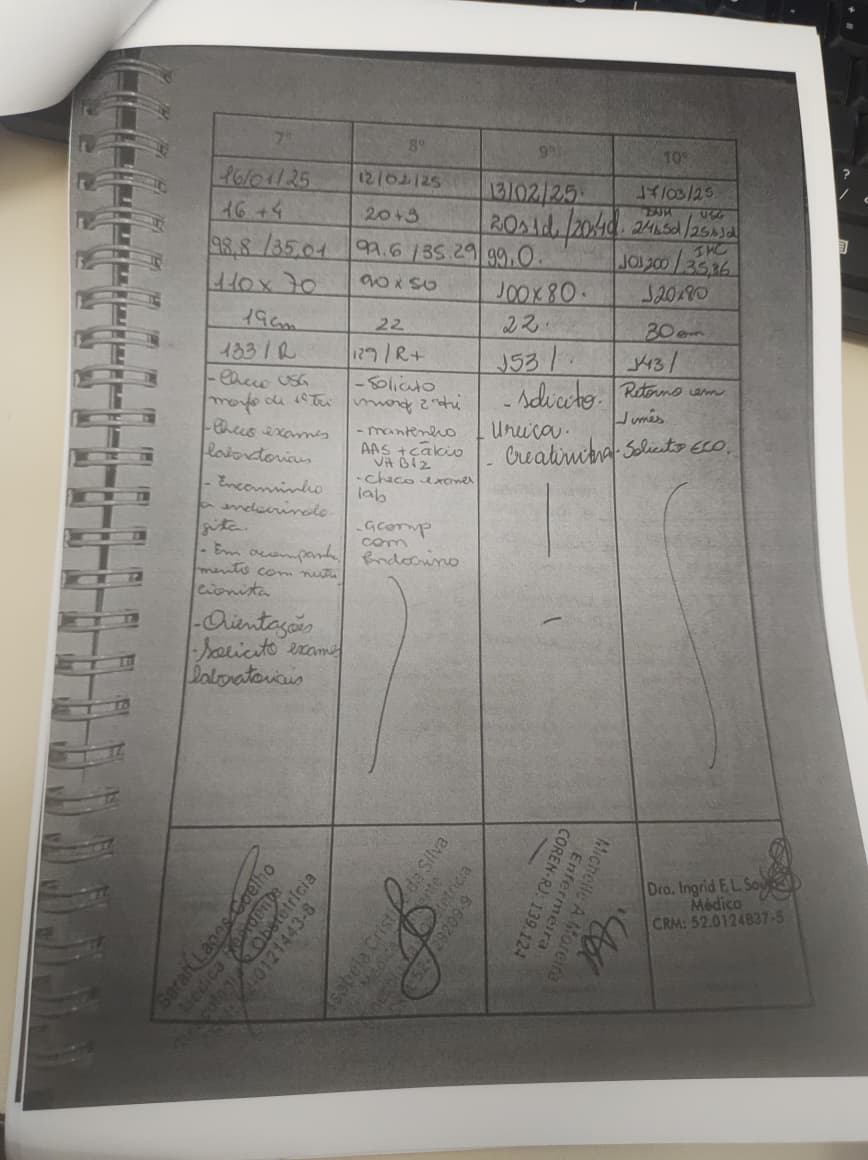 7º 8º 9º 10º
16/01/25 12/02/25 13/02/25. 17/03/25
16 + 4 20+3 20s1d/20s4d. DUM USG 24s5d/25s1d
98,8/35,01 99.6/35.29 99,0. IMC 101200/35,36
110 x 70 90 x 50 100x80. 120x80
19cm 22 22. 30cm
133/R 129/R+ 153/. 143/
- Checo USG
morfo de 1º Tri
- Checo exames
laboratoriais
- Encaminho
a endocrinolo
gista.
- Em acompanha
mento com nutri
cionista
- Orientações
- Solicito exames
laboratoriais
- Solicito
morf 2º tri
- mantenho
AAS + cálcio
Vit B12
- Checo exames
lab
- acomp
com
Endocrino
- Solicito.
- Ureica.
- Creatinina.
Retorno em
1 mês
- Solicito ECO.
Sarah Lages Coelho
Médica Residente
Obstetrícia
52.0121443-8
Isabela Cristina da Silva
Michelle A. Moreira
Enfermeira
COREN-RJ: 139.124
Dra. Ingrid F. L.
Médica
CRM: 52.0124837-5